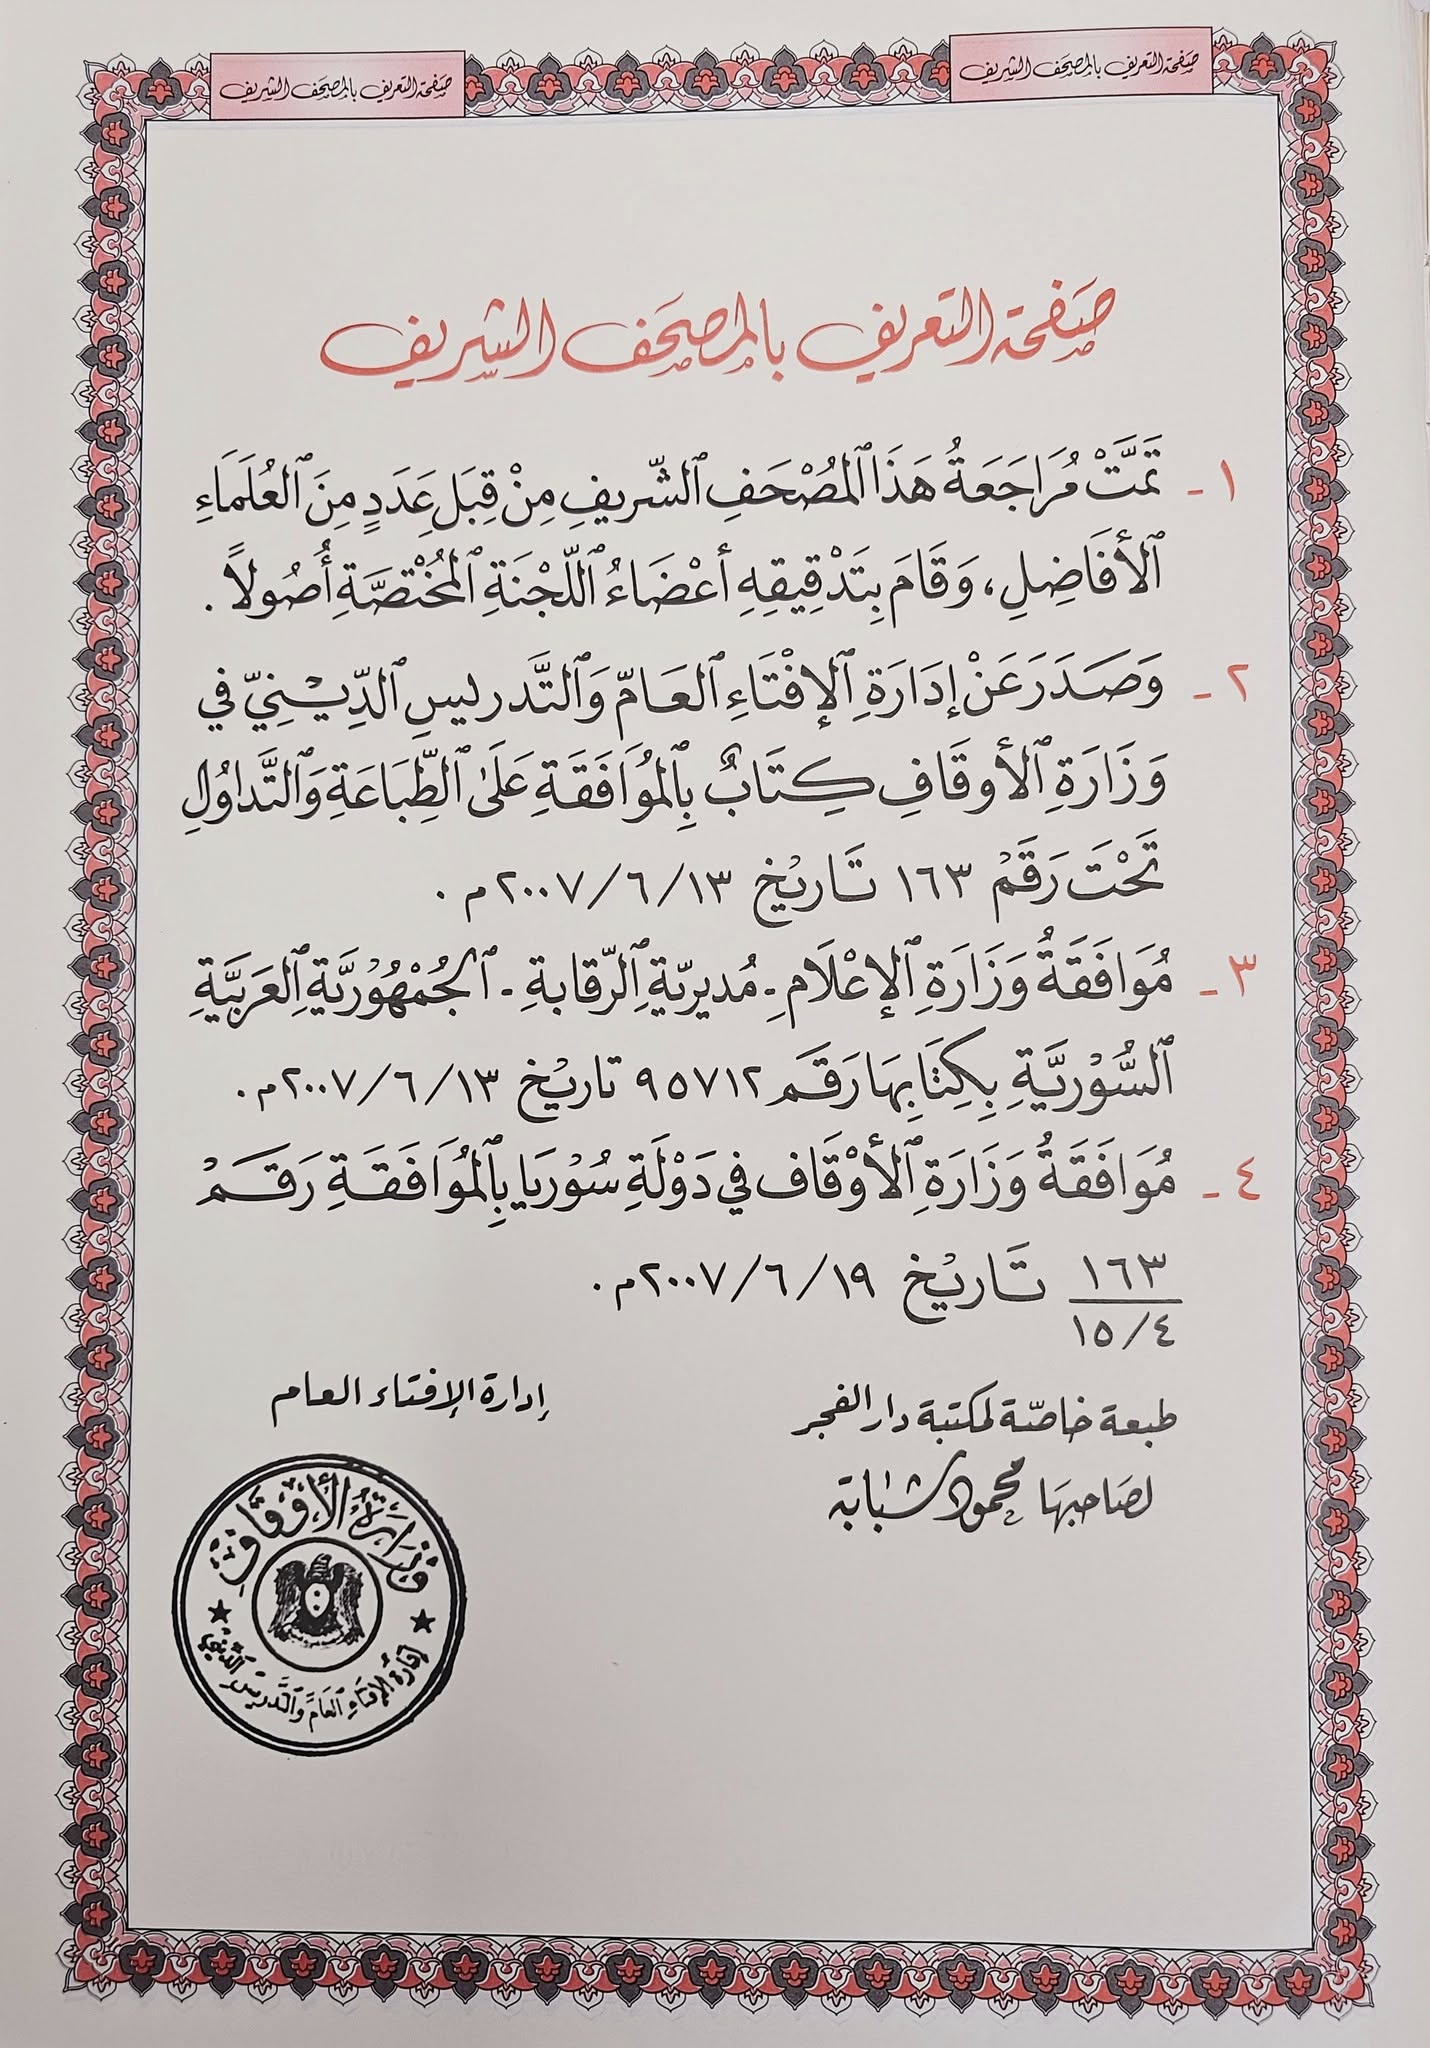 صفحة التعريف بالمصحف الشريف
صفحة التعريف بالمصحف الشريف
صَفحة التعريف بالمصحَف الشريف
١ - تَمَّتْ مُرَاجَعَةُ هَذَا ٱلْمُصْحَفِ ٱلشّريفِ مِنْ قِبَلِ عَدَدٍ مِنَ ٱلعُلَمَاءِ
ٱلأفَاضِلِ، وَقَامَ بِتَدْقِيقِهِ أعْضَاءُ ٱللّجْنَةِ ٱلمُخْتصَّةِ أُصُولاً .
٢ - وَصَدَرَ عَنْ إدَارَةِ ٱلإفْتَاءِ ٱلعَامّ وَٱلتَّدريسِ ٱلدِّينِيّ في
وَزَارَةِ ٱلأوقَافِ كِتَابٌ بِٱلمُوَافَقَةِ عَلَىٰ ٱلطِّبَاعَةِ وَٱلتَّداوُلِ
تَحْتَ رَقَمْ ١٦٣ تَاريْخ ٢٠٠٧/٦/١٣ م .
٣ - مُوَافَقَةُ وَزَارَةِ ٱلإعْلَامِ - مُديريّةِ ٱلرّقابةِ - ٱلجُمْهُوْريَّةِ ٱلعَرَبيَّةِ
ٱلسُّوْريَّةِ بِكِتَابِهَا رَقَم ٩٥٧١٢ تاريْخ ٢٠٠٧/٦/١٣م .
٤ - مُوَافَقَةُ وَزَارَةِ ٱلأوْقَاف في دَوْلَةِ سُوْريَا بِٱلمُوَافَقَةِ رَقَمْ
١٦٣
١٥/٤
تَاريْخ ٢٠٠٧/٦/١٩م .
طبعة خاصّة لمكتبة دار الفجر
لصَاحبهَا محمود شبابة
إدارة الإفتاء العام
وزارة الأوقاف
إدارة الإفتاء العام والتدريس الديني